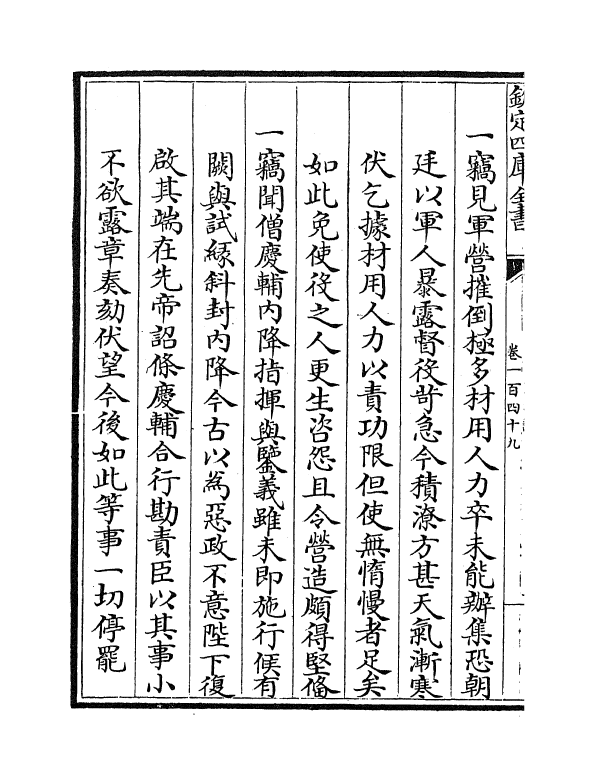 欽定四庫全書
卷一百四十九
一竊見軍營摧倒極多材用人力卒未能辦集恐朝
廷以軍人暴露督役苛急今積潦方甚天氣漸寒
伏乞據材用人力以責功限但使無惰慢者足矣
如此免使役之人更生咨怨且令營造頗得堅偹
一竊聞僧慶輔内降指揮與鑒義雖未即施行候有
闕與試縁斜封内降今古以爲惡政不意陛下復
啟其端在先帝詔條慶輔合行勘責臣以其事小
不欲露章奏劾伏望今後如此等事一切停罷